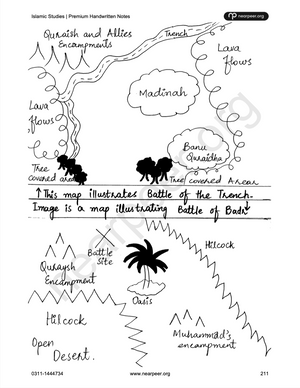 Islamic Studies | Premium Handwritten Notes
nearpeer.org
Quraish and Allies
Encampments
Trench
Lava
flows
Madinah
Lava
flows
Banu
Quraidha
Tree
covered area
Tree covered Areas
↑ This map illustrates Battle of the Trench.
Image is a map illustrating Battle of Badr↓
Hilcock
Battle
Site
Quraysh
Encampment
Oasis
Hilcock
Open
Desert.
Muhammad's
encampment
nearpeer.org
0311-1444734
www.nearpeer.org
211